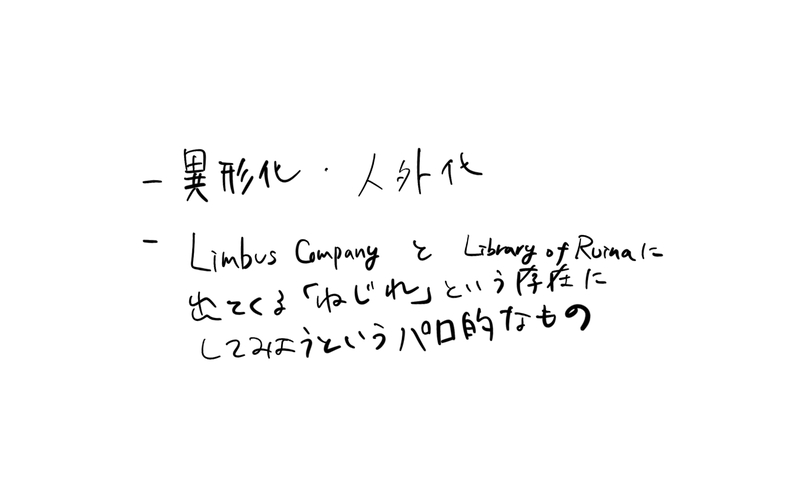 - 異形化・人外代
- Limbus Company と Library of Ruinaに
出てくる「ねじれ」という存在に
してみようというパロ的なもの